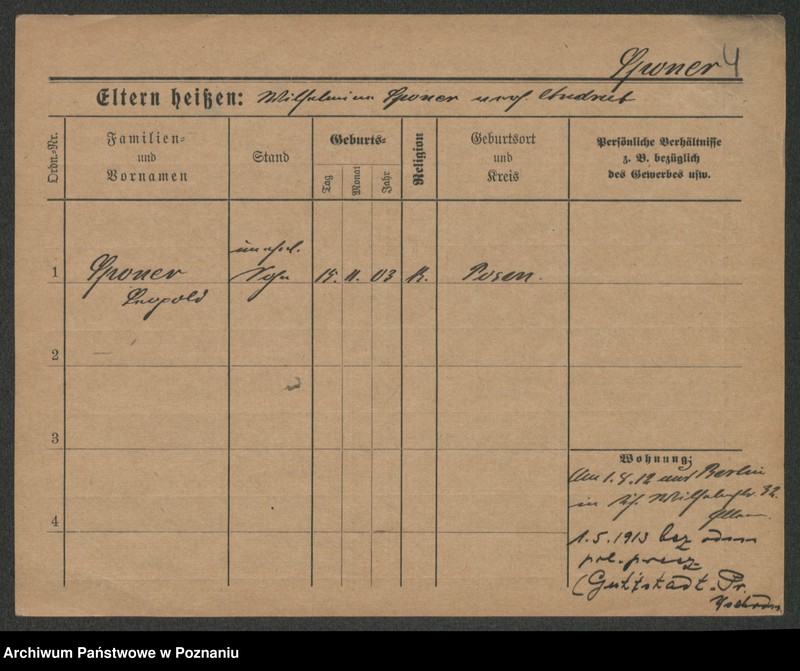 Sponer 4
Eltern heißen: Wilhelmina Sponer
Ordn.-Nr.
Familien- und Vornamen
Stand
Geburts-
Tag
Monat
Jahr
Religion
Geburtsort und Kreis
Persönliche Verhältnisse z. B. bezüglich des Gewerbes usw.
unehel.
1 Sponer Sohn 15. 11. 03 K. Posen.
Leopold
2
3
4
Wohnung:
Am 1.8.12 Berlin
in 32.
1.5.1913 bez
(Guttstadt. Pr.
Archiwum Państwowe w Poznaniu